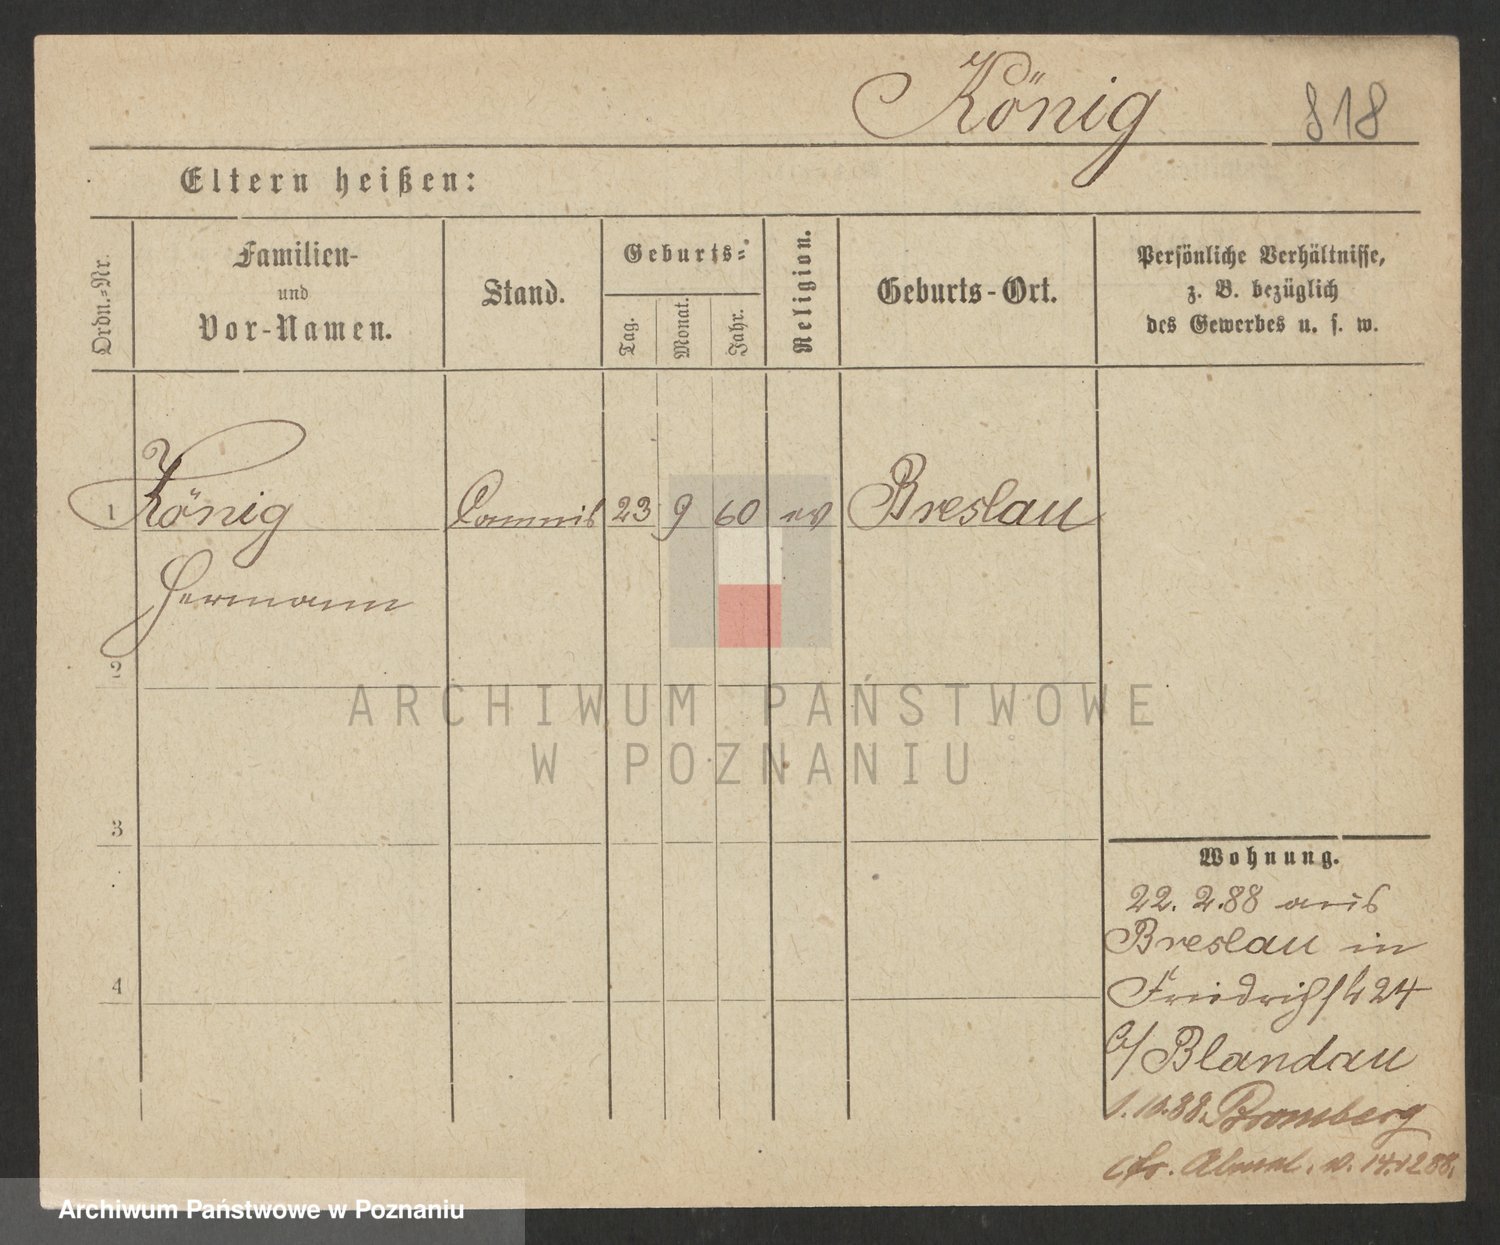 König 818
Eltern heißen:
Ordn.-Nr.
Familien-
und
Vor-Namen.
Stand.
Geburts-:
Tag.
Monat.
Jahr.
Religion.
Geburts-Ort.
Persönliche Verhältnisse,
z. B. bezüglich
des Gewerbes u. s. w.
1 König Commis 23 9 60 ev Breslau
Hermann
2
ARCHIWUM PAŃSTWOWE
W POZNANIU
3
Wohnung.
22. 2.88 aus
Breslau in
4
Friedrichstr 24
b/ Blandau
1.10.88. Bromberg
cfr. v. 14.12 88.
Archiwum Państwowe w Poznaniu